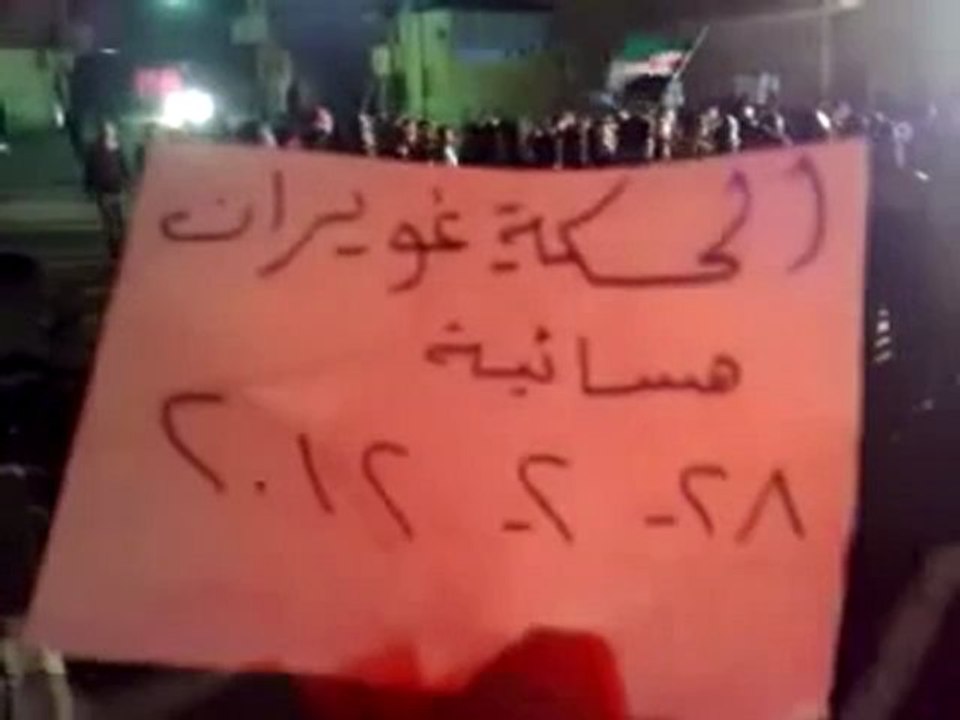 الحسكة غويران
مسائية
٢٨- ٢- ٢٠١٢